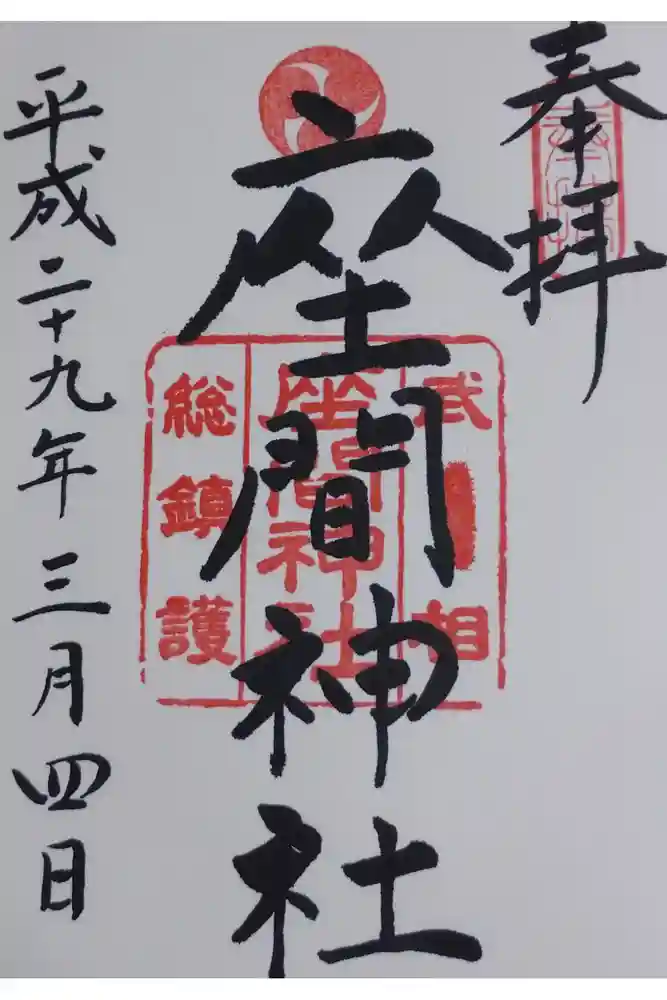 奉拝
座間神社
武相
座間神社
総鎮護
平成二十九年三月四日